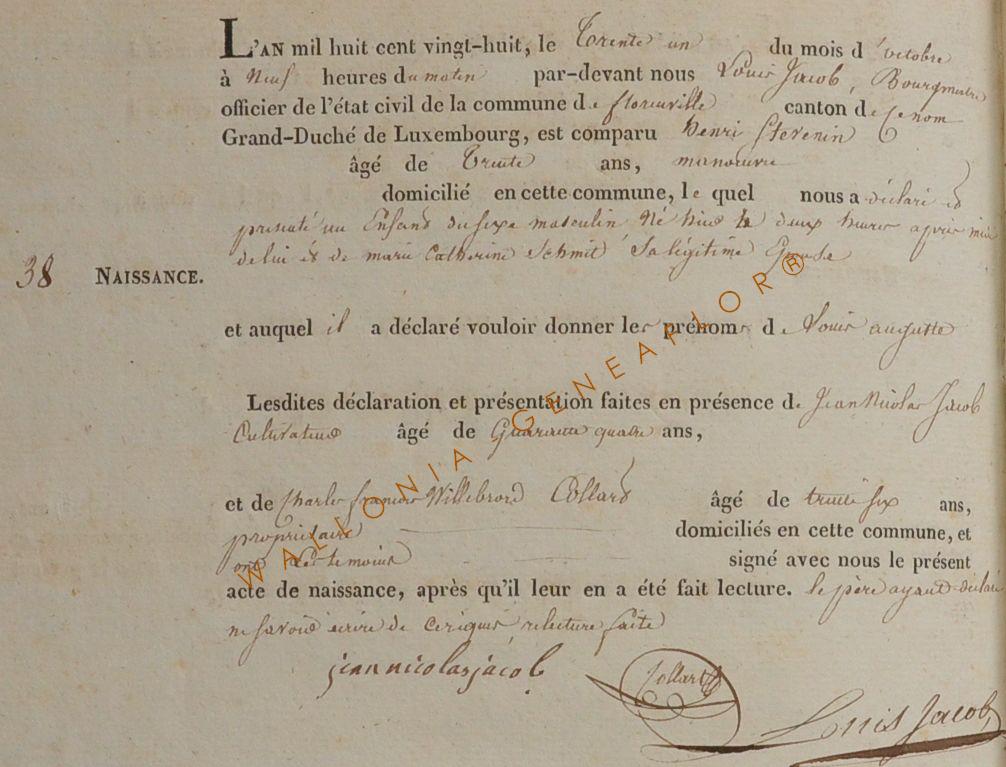 L'AN mil huit cent vingt-huit, le Trente un du mois d'octobre
à Neuf heures du matin par-devant nous Louis Jacob, Bourgmestre
officier de l'état civil de la commune de florenville canton de ce nom
Grand-Duché de Luxembourg, est comparu Henri Stevenin
âgé de Trente ans, manoeuvre
domicilié en cette commune, le quel nous a déclaré et
presenté un Enfant du sexe masculin Né hier à deux heures après midi
de lui et de marie Catherine Schmit Sa légitime Epouse
38 NAISSANCE.
et auquel il a déclaré vouloir donner les prénoms de Louis auguste
Lesdites déclaration et présentation faites en présence de Jean Nicolas Jacob
Cultivateur âgé de Quarante quatre ans,
et de Charles francois Willebrord Collard âgé de trente six ans,
propriétaire domiciliés en cette commune, et
ont les temoins signé avec nous le présent
acte de naissance, après qu'il leur en a été fait lecture. le père ayant déclaré
ne savoir écrire de ce requis, relecture faite
jean nicolas jacob Collard Louis Jacob
WALLONIA GENEAPLOR®